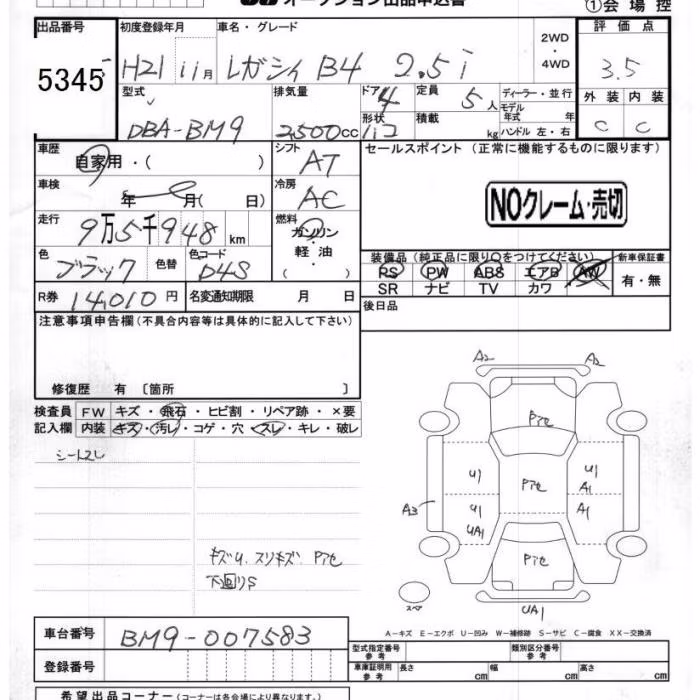 オークション出品申込書
①会場控
出品番号 初度登録年月 車名・グレード 2WD・4WD 評価点
5345 H21 11月 レガシィ B4 2.5i 3.5
型式 排気量 ドア 4 定員 5人 ディーラー・並行 外装 内装
DBA-BM9 2500cc 形状 積載 kg モデル年式 年 ハンドル 左・右 C C
車歴 自家用・( ) シフト AT セールスポイント (正常に機能するものに限ります)
車検 年 月( 日) 冷房 AC NOクレーム・売切
走行 9万5千948km 燃料 ガソリン・軽油・( )
色 ブラック 色替 色コード D4S 装備品(純正品に限り○をつけてください) 新車保証書
PS PW ABS エアB AW 有・無
SR ナビ TV カワ
R券 14,010円 名変通知期限 月 日 後日品
注意事項申告欄(不具合内容等は具体的に記入して下さい)
修復歴 有 〔箇所 〕
検査員 FW キズ・飛石・ヒビ割・リペア跡・×要
記入欄 内装 キズ・汚レ・コゲ・穴・スレ・キレ・破レ
シートスレ
A2 A2
Pアセ
U1 Pアセ U1
A1
A3 U1 A1
UA1
Pアセ
キズU.スリキズ.Pアセ
下回りS
スペア UA1
A-キズ E-エクボ U-凹み W-補修跡 S-サビ C-腐食 XX-交換済
車台番号 BM9-007583
型式指定番号 参考 類別区分番号 参考
登録番号 車庫証明用 参考 長さ cm 幅 cm 高さ cm
希望出品コーナー(コーナーは各会場により異なります。)